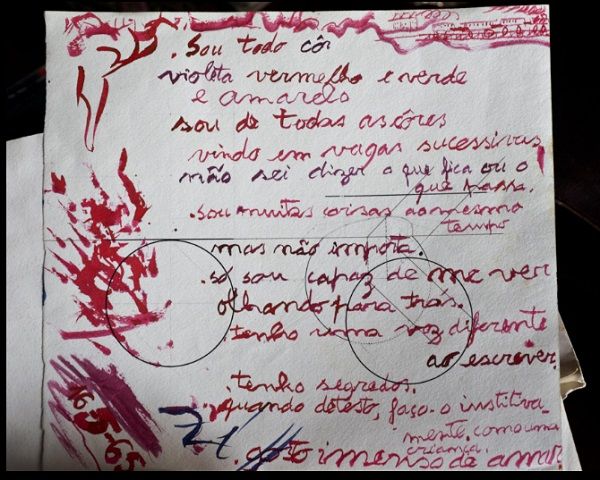 . Sou todo côr
violeta vermelho e verde
e amarelo
sou de todas as côres
vindo em vagas sucessivas
não sei dizer o que fica ou o
que passa.
. sou muitas coisas ao mesmo
tempo
mas não importa.
. só sou capaz de me ver
olhando para tras.
. tenho uma voz diferente
ao escrever.
. tenho segredos.
quando detesto, faço-o institiva-
mente. como uma
criança.
. gosto imenso de amar
16
5-65